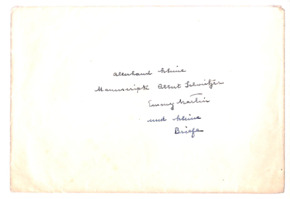 allerhand kleine
Manuscripte Albert Schweitzer
Emmy Martin
und kleine
Briefe